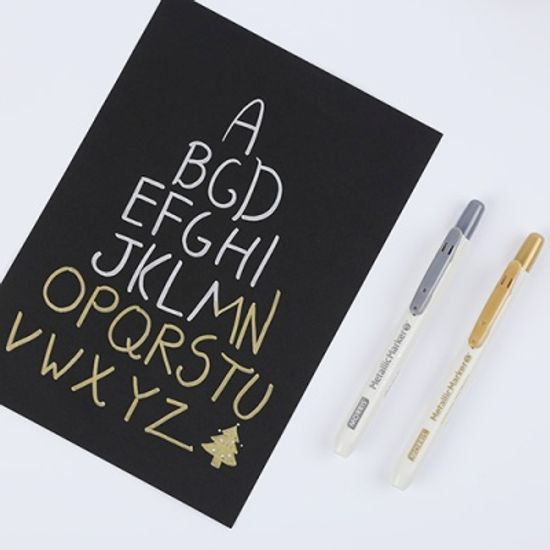 A
BGD
EFGHI
JKLMN
OPQRSTU
VWXYZ
MORRIS Metallic Marker
MORRIS Metallic Marker